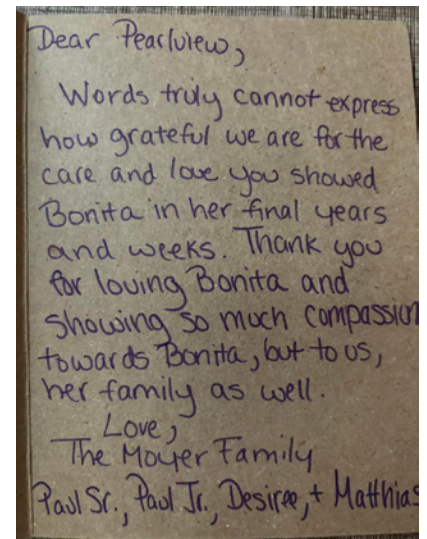 Dear Pearlview,
Words truly cannot express
how grateful we are for the
care and love you showed
Bonita in her final years
and weeks. Thank you
for loving Bonita and
showing so much compassion
towards Bonita, but to us,
her family as well.
Love,
The Moyer Family
Paul Sr., Paul Jr., Desiree, + Matthias